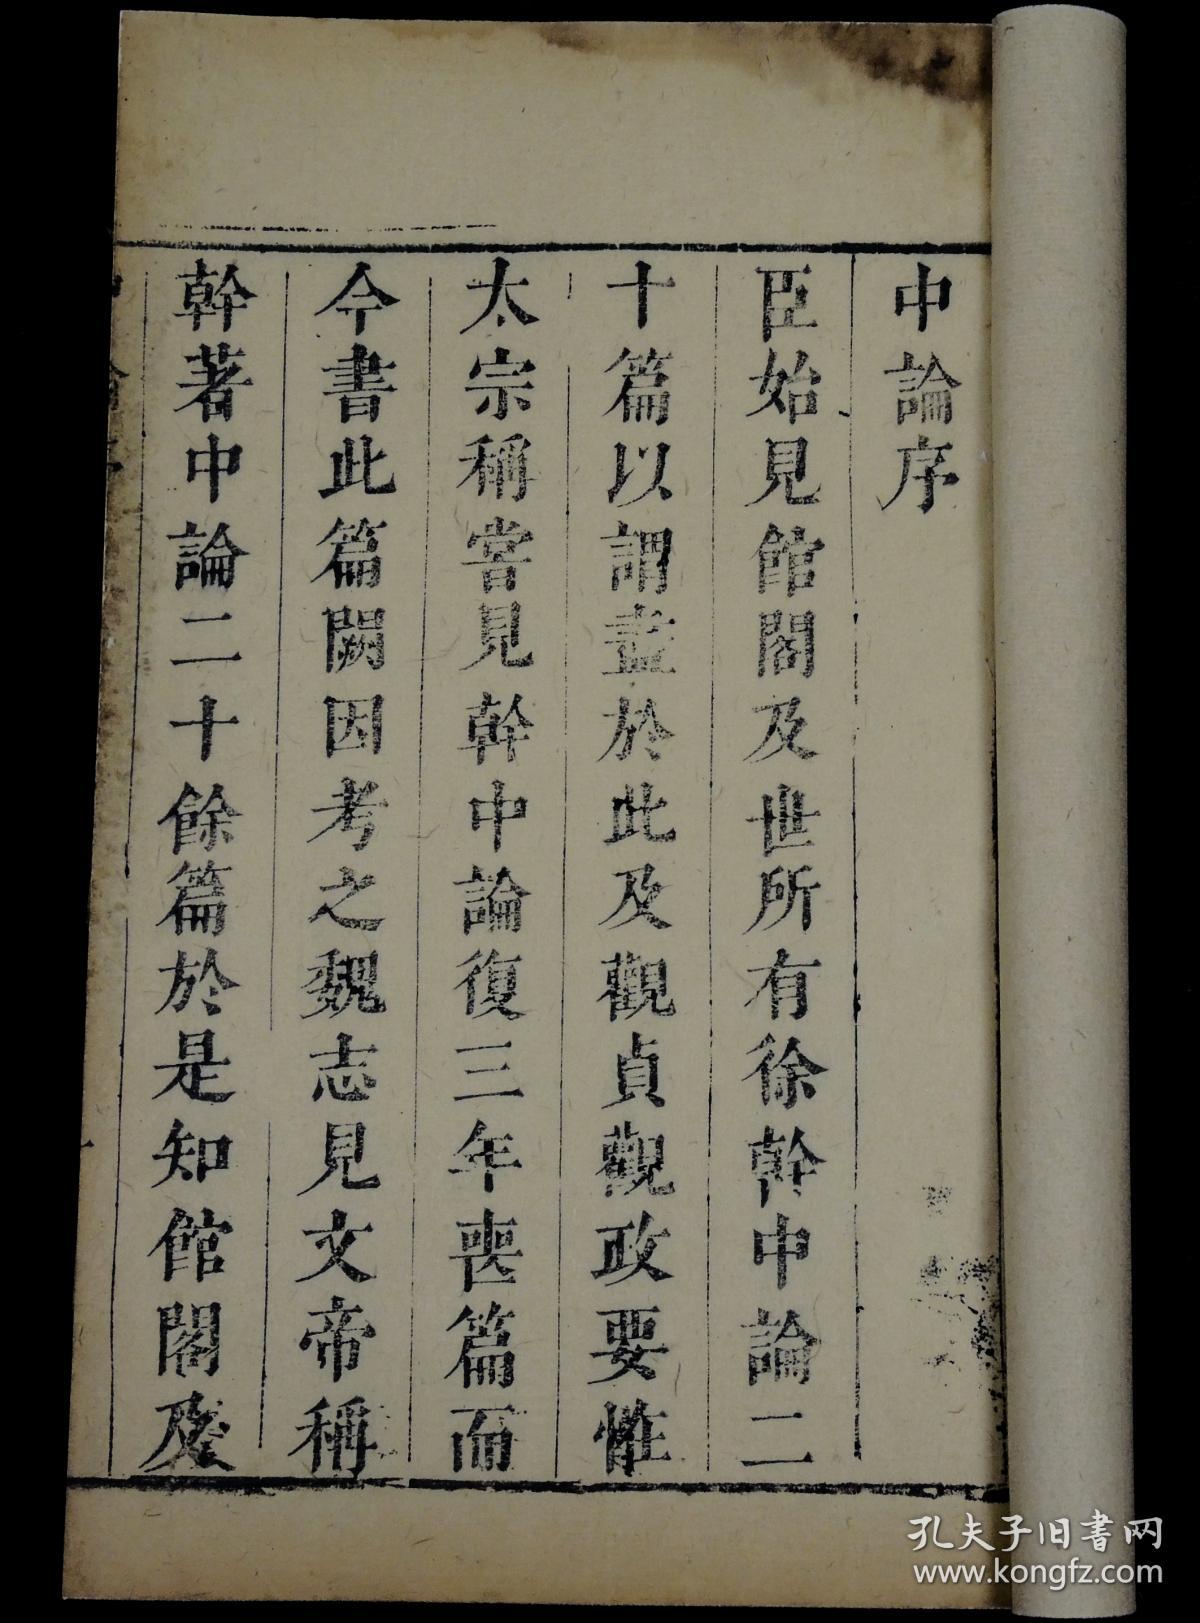 中論序
臣始見館閣及世所有徐幹中論二
十篇以謂盡於此及觀貞觀政要惟
太宗稱嘗見幹中論復三年喪篇而
今書此篇闕因考之魏志見文帝稱
幹著中論二十餘篇於是知館閣及
孔夫子旧书网
www.kongfz.com